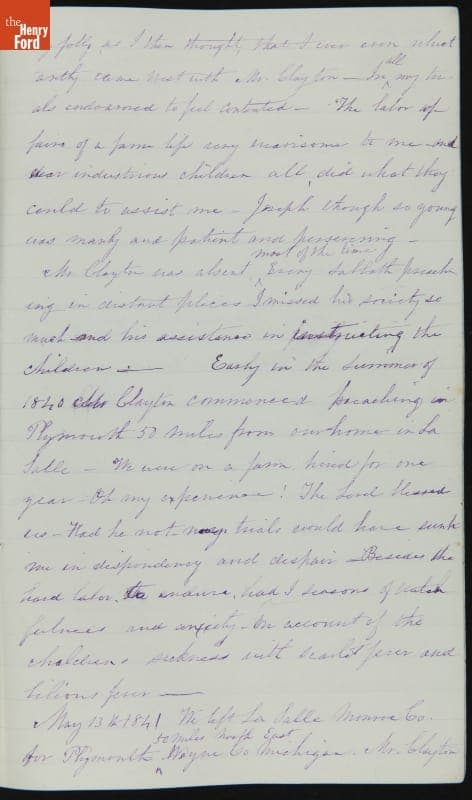 the
Henry
Ford
folly as I then thought that I ever even
came West with Mr. Clayton - In all my tri-
als endeavored to feel contented - The labor of
farm life very wearisome to me - and
dear industrious children all did what they
could to assist me - Joseph though so young
was manly and patient and persevering -
Mr. Clayton was absent most of the time Every Sabbath preach
ing in distant places I missed his society so
much and his assistance in instructing the
children - Early in the summer of
1840 Clayton commenced preaching in
Plymouth 50 miles from our home in La
Salle - We were on a farm hired for one
year - Oh my experience! The Lord blessed
us - Had he not my trials would have sunk
me in dispondency and despair - Besides the
hard labor to endure, had I seasons of watch
fulness and anxiety - on account of the
childrens sickness with scarlet fever and
bilious fever -
May 13th 1841 We left La Salle Monroe Co.
for Plymouth 50 miles North East Wayne Co Michigan. Mr. Clayton